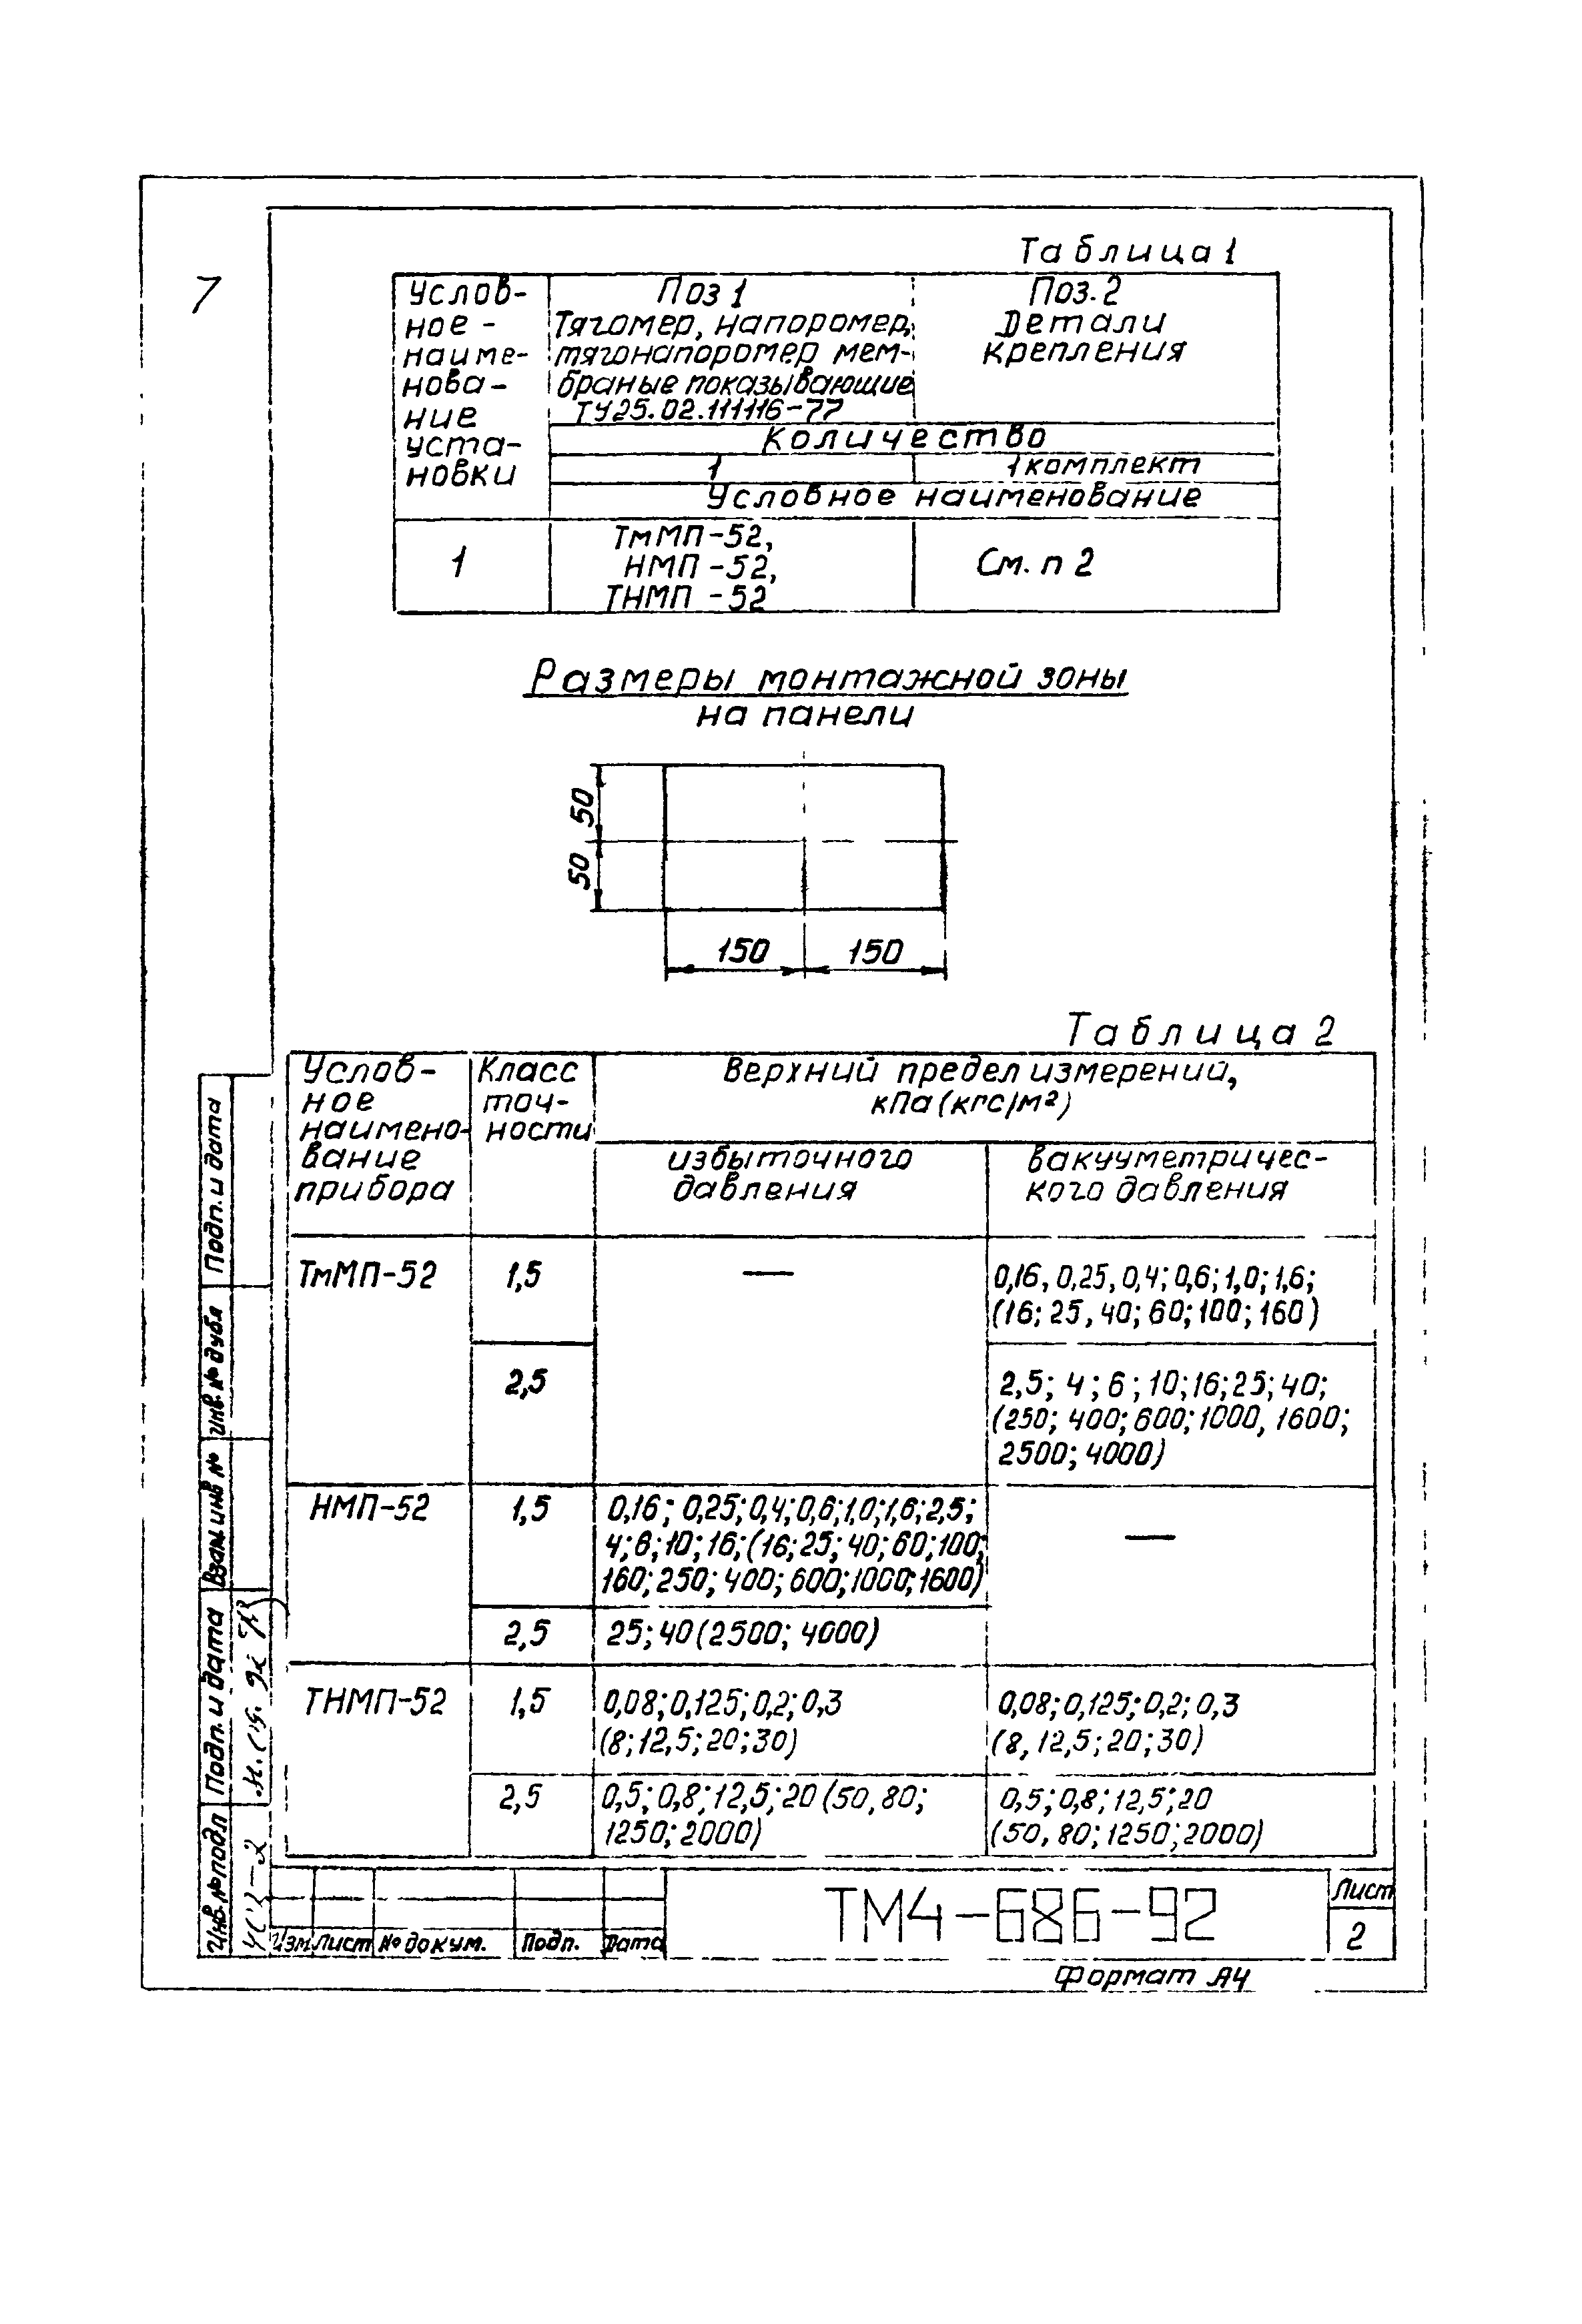 7
Таблица 1
Услов-
ное-
наиме-
нова-
ние
уста-
новки
Поз 1
Тягомер, напоромер,
тягонапоромер мем-
браные показывающие
ТУ25.02.111116-77
Поз. 2
Детали
крепления
Количество
1
1 комплект
Условное наименование
1
ТмМП-52,
НМП-52,
ТНМП-52
См. п 2
Размеры монтажной зоны
на панели
50
50
150
150
Таблица 2
Услов-
ное
наимено-
вание
прибора
Класс
точ-
ности
Верхний предел измерений,
кПа (кгс/м²)
избыточного
давления
вакууметричес-
кого давления
ТмМП-52
1,5
—
0,16, 0,25, 0,4; 0,6; 1,0; 1,6;
(16; 25, 40; 60; 100; 160)
2,5
2,5; 4; 6; 10; 16; 25; 40;
(250; 400; 600; 1000, 1600;
2500; 4000)
НМП-52
1,5
0,16; 0,25; 0,4; 0,6; 1,0; 1,6; 2,5;
4; 6; 10; 16; (16; 25; 40; 60; 100;
160; 250; 400; 600; 1000; 1600)
—
2,5
25; 40 (2500; 4000)
ТНМП-52
1,5
0,08; 0,125; 0,2; 0,3
(8; 12,5; 20; 30)
0,08; 0,125; 0,2; 0,3
(8, 12,5; 20; 30)
2,5
0,5; 0,8; 12,5; 20 (50, 80;
1250; 2000)
0,5; 0,8; 12,5; 20
(50, 80; 1250; 2000)
Подп. и дата
Инв. № дубл
Взам. инв №
Подп. и дата
Инв. № подл
Изм
Лист
№ докум.
Подп.
Дата
ТМ4-686-92
Лист
2
Формат А4